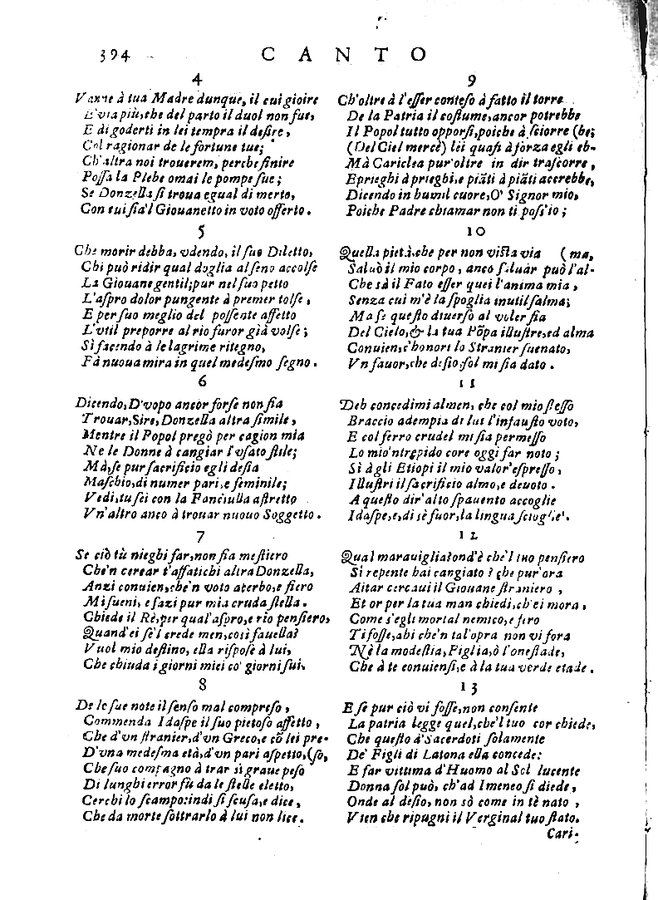 394 CANTO
4
Vanne à tua Madre dunque, il cui gioire
E via più, che del parto il duol non fue,
E di goderti in lei tempra il desire,
Col ragionar de le fortune tue;
Ch'altra noi trouerem, perche finire
Possa la Plebe omai le pompe sue;
Se Donzella si troua egual di merto,
Con cui sia'l Giouanetto in voto offerto.
5
Che morir debba, vdendo, il suo Diletto,
Chi può ridir qual doglia al seno accolse
La Giouane gentil; pur nel suo petto
L'aspro dolor pungente à premer tolse,
E per suo meglio del possente affetto
L'vtil preporre al rio furor già volse;
Sì facendo à le lagrime ritegno,
Fà nuoua mira in quel medesmo segno.
6
Dicendo, D'vopo ancor forse non fia
Trouar, Sire, Donzella altra simile,
Mentre il Popol pregò per cagion mia
Ne le Donne à cangiar l'vsato stile;
Mà, se pur sacrificio egli desia
Maschio, di numer pari, e feminile;
Vedi, tu sei con la Fanciulla astretto
Vn'altro anco à trouar nuouo Soggetto.
7
Se ciò tù nieghi far, non fia mestiero
Che'n cercar t'affatichi altra Donzella,
Anzi conuien, che'n voto acerbo, e fiero
Mi sueni, e sazi pur mia cruda stella.
Chiede il Rè, per qual'aspro, e rio pensiero,
Quand'ei se'l crede men, così fauella?
Vuol mio destino, ella rispose à lui,
Che chiuda i giorni miei co' giorni sui.
8
De le sue note il senso mal compreso,
Commenda Idaspe il suo pietoso affetto,
Che d'vn stranier, d'vn Greco, e cō lei pre-
D'vna medesma età, d'vn pari aspetto, (so,
Che suo compagno à trar sì graue peso
Di lunghi error fù da le stelle eletto,
Cerchi lo scampo: indi si scusa, e dice,
Che da morte sottrarlo à lui non lice.
9
Ch'oltre à l'esser conteso à fatto il torre
De la Patria il costume, ancor potrebbe
Il Popol tutto opporsi, poiche à sciorre (be;
(Del Ciel mercè) lei quasi à forza egli eb-
Mà Cariclea pur'oltre in dir trascorre,
E prieghi à prieghi, e piāti à piāti accrebbe,
Dicendo in humil cuore, O' Signor mio,
Poiche Padre chiamar non ti poss'io;
10
Quella pietà, che per non vista via (ma,
Saluò il mio corpo, anco saluar può l'al-
Che sà il Fato esser quei l'anima mia,
Senza cui m'è la spoglia inutil salma;
Ma se questo diuerso al voler sia
Del Cielo, & la tua Pōpa illustre, ed alma
Conuien, c'honori lo Stranier suenato,
Vn fauor, che desio, sol mi sia dato.
11
Deh concedimi almen, che col mio stesso
Braccio adempia di lui l'infausto voto,
E col ferro crudel mi sia permesso
Lo mio'ntrepido core oggi far noto;
Sì à gli Etiopi il mio valor'espresso,
Illustri il sacrificio almo, e deuoto.
A questo dir'alto spauento accoglie
Idaspe, e, di sè fuor, la lingua scioglie.
12
Qual marauiglia! ond'è che'l tuo pensiero
Sì repente hai cangiato? che pur'ora
Aitar cercaui il Giouane straniero,
Et or per la tua man chiedi, ch'ei mora,
Come s'egli mortal nemico, e fiero
Ti fosse, ahi che'n tal'opra non vi fora
Nè la modestia, Figlia, ò l'onestade,
Che à te conuiensi, e à la tua verde etade.
13
E se pur ciò vi fosse, non consente
La patria legge quel, che'l tuo cor chiede,
Che questo à Sacerdoti solamente
De' Figli di Latona ella concede:
E far vittima d'Huomo al Sol lucente
Donna sol può, ch'ad Imeneo si diede,
Onde al desio, non sò come in tè nato,
Vien che ripugni il Verginal tuo stato.
Cari-